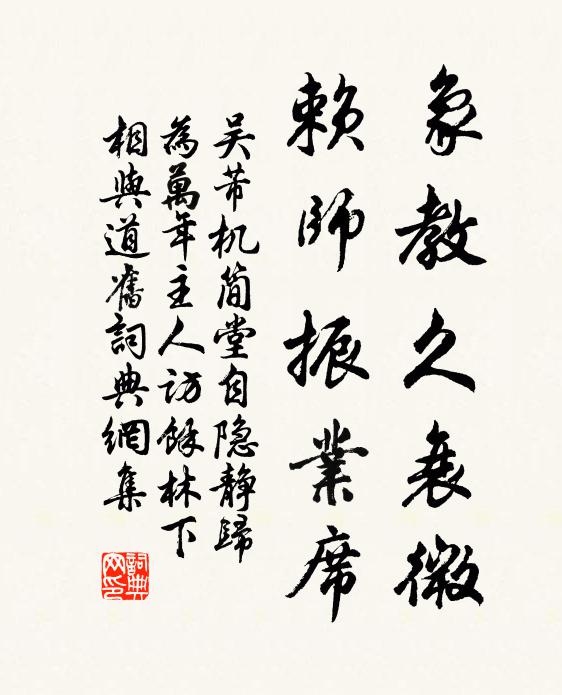 象教久衰微
賴師振業席
吴芾机简堂自隐静歸
為萬年主人访餘林下
相與道舊詞典網集
詞典網印